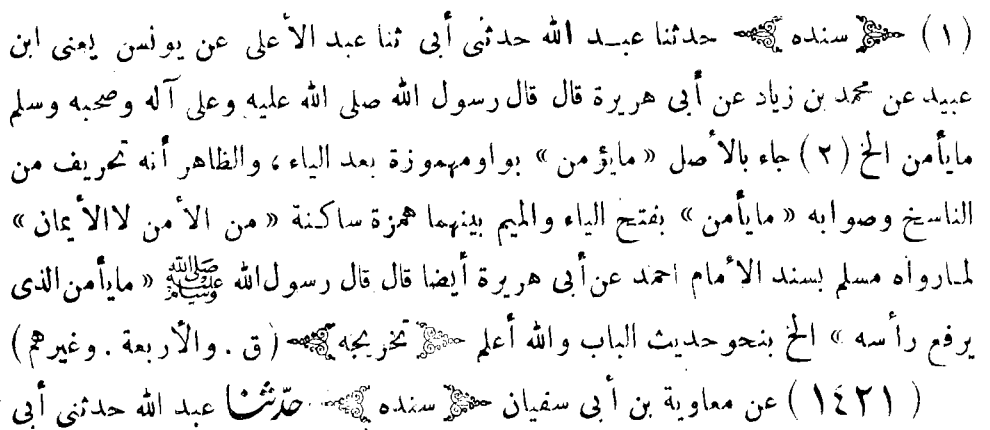 (١) سنده حدثنا عبد الله حدثنى أبى ثنا عبد الأعلى عن يونس يعنى ابن
عبيد عن محمد بن زياد عن أبى هريرة قال قال رسول الله صلى الله عليه وعلى آله وصحبه وسلم
مايأمن الخ (٢) جاء بالأصل « مايؤمن » بواو مهموزة بعد الياء، والظاهر أنه تحريف من
الناسخ وصوابه « مايأمن » بفتح الياء والميم بينهما همزة ساكنة « من الأمن لا الأيمان »
لما رواه مسلم بسند الأمام احمد عن أبى هريرة أيضا قال قال رسول الله ﷺ « مايأمن الذى
يرفع رأسه » الخ بنحو حديث الباب والله أعلم تخريجه (ق . والأربعة . وغيرهم)
(١٤٢١) عن معاوية بن أبى سفيان سنده حدّثنا عبد الله حدثنى أبى